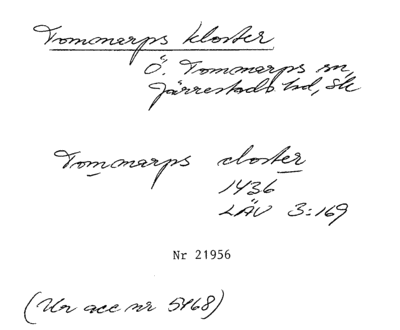 Tommarps kloster
Ö. Tommarps sn,
Järrestads hd, Sk
Tommarps closter
1436
LÄU 3:169
Nr 21956
(Ur acc nr 5468)